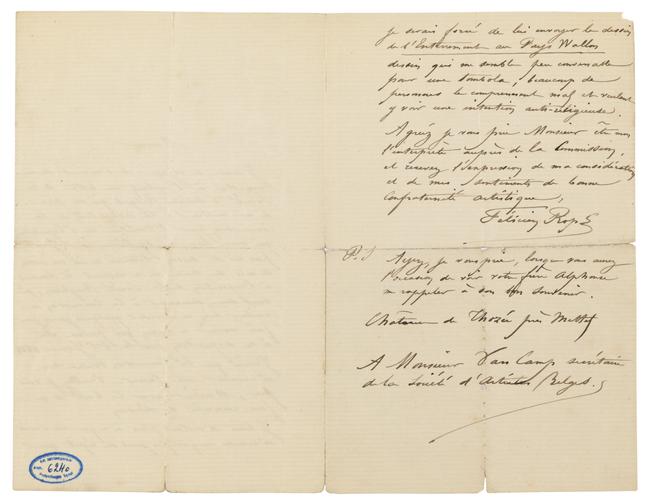 je serais forcé de lui envoyer le dessin
de l'Enterrement au Pays Wallon
dessin qui me semble peu convenable
pour une tombola, beaucoup de
personnes le comprennent mal et veulent
y voir une intention anti-religieuse.
Agréez je vous prie Monsieur être mon
l'interprète auprès de la Commission,
et recevez l'expression de ma considération
et de mes sentiments de bonne
confraternité artistique,
Félicien Rops
P.S Ayez, je vous prie, lorsque vous aurez
l'occasion de voir votre frère Alphonse
me rappeler à son bon souvenir.
Château de Thozée près Mettet
A Monsieur Van Camp secrétaire
de la Société d'Artistes Belges.
6240